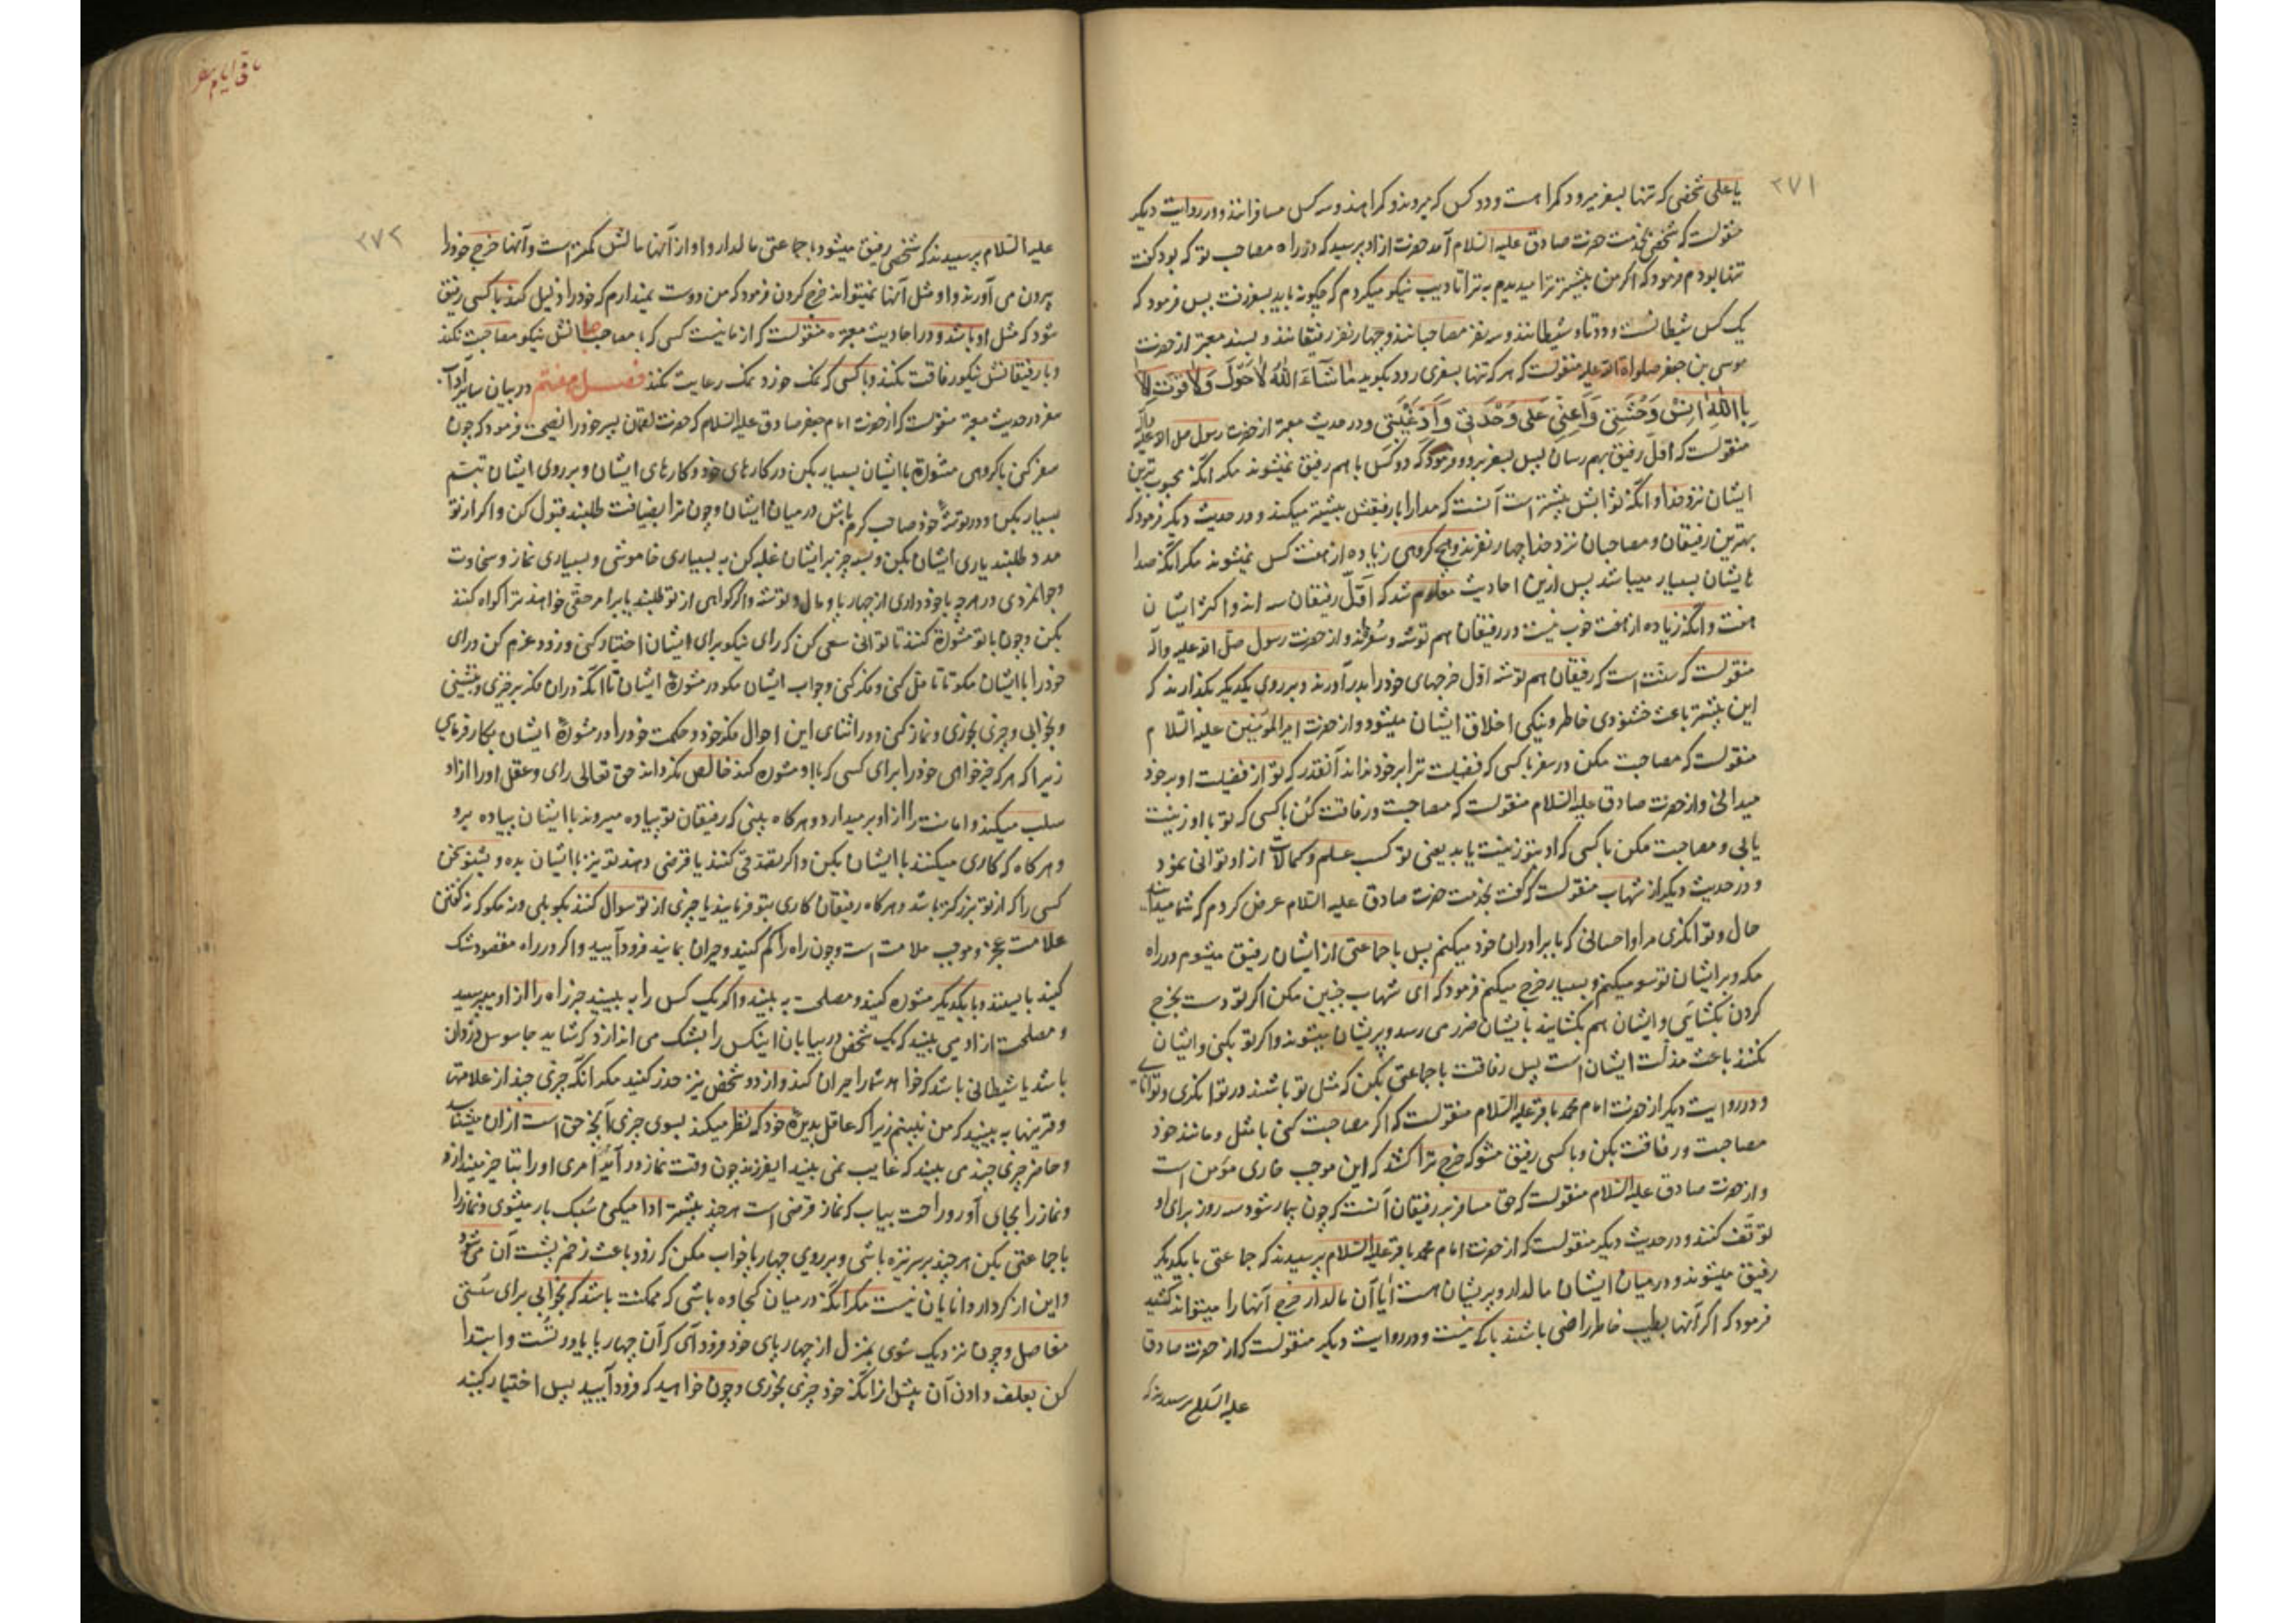 ۲۷۱
یا علی شخصی که تنها بسفر میرود کمراهست و دو کس که میروند دو کمراهند و سه کس مسافرانند و در روایت دیکر
منقولست که شخصی بخدمت حضرت صادق علیه السلام آمد حضرت ازاو پرسید که در راه مصاحب تو که بود کفت
تنها بودم فرمود که اکر من پیشتر ترا میدیدم ترا تادیب نیکو میکردم که چکونه باید بسفر رفت پس فرمود که
یک کس شیطانست و دو تا دو شیطانند و سه نفر مصاحبانند و چهار نفر رفیقانند و بسند معتبر از حضرت
موسی بن جعفر صلواة الله علیه منقولست که هر که تنها بسفری رود بکوید مَا شَآءَ اللهُ لَا حَوْلَ وَلَا قُوَّتَ اِلَّا
بِاللهِ انِسْ وَحْشَتِی وَاَعِنِّی عَلی وَحْدَتی وَاَدِّ غَیْبَتی و در حدیث معتبر از حضرت رسول صلی الله علیه و آله
منقولست که اول رفیق بهم رسان پس بسفر برو و فرمود که دو کس با هم رفیق نمیشوند مکر انکه محبوب ترین
ایشان نزد خدا و انکه ثوابش بیشتر است آنست که مدارا با رفیقش بیشتر میکند و در حدیث دیکر فرمود که
بهترین رفیقان و مصاحبان نزد خدا چهار نفرند و هیچ کروهی زیاده از هفت کس نمیشوند مکر انکه صدا
ء ایشان بسیار میباشد پس ازین احادیث معلوم شد که اَقَلّ رفیقان سه اند و اکثر ایشان
هفت و انکه زیاده از هفت خوب نیست در رفیقان هم توشه و سُفره و از حضرت رسول صلی الله علیه و آله
منقولست که سنّت است که رفیقان هم توشه اوّل خرجهای خود را بدر آورند و بر روی یکدیکر بکذارند که
این بیشتر باعث خشنودی خاطر و نیکی اخلاق ایشان میشود و از حضرت امیرالمؤمنین علیه السّلام
منقولست که مصاحبت مکن در سفر با کسی که فضیلت ترا بر خود نداند آنقدر که تو از فضیلت او بر خود
میدانی و از حضرت صادق علیه السّلام منقولست که مصاحبت و رفاقت کن با کسی که تو با او زینت
یابی و مصاحبت مکن با کسی که او بتو زینت یابد یعنی تو کسب علم و کمالات از او توانی نمود
و در حدیث دیکر از شهاب منقولست که کفت بخدمت حضرت صادق علیه السلام عرض کردم که شما میدانید
حال و توانکری مرا و احسانی که با برادران خود میکنم پس با جماعتی از ایشان رفیق میشوم در راه
مکه و بر ایشان توسع میکنم و بسیار خرج میکنم فرمود که ای شهاب چنین مکن اکر تو دست بخرج
کردن بکشائی و ایشان هم بکشایند بایشان ضرر می رسد و پریشان میشوند و اکر تو بکنی و ایشان
نکنند باعث مذلت ایشان است پس رفاقت با جماعتی بکن که مثل تو باشند در توانکری و توانایی
و در روایت دیکر از حضرت امام محمد باقر علیه السلام منقولست که اکر مصاحبت کنی با مثل و مانند خود
مصاحبت و رفاقت بکن و با کسی رفیق مشو که خرج ترا کشد که این موجب خاری مؤمن است
و از حضرت صادق علیه السلام منقولست که حق مسافر بر رفیقان آنست که چون بیمار شود سه روز برای او
توقّف کنند و در حدیث دیکر منقولست که از حضرت امام محمد باقر علیه السّلام پرسیدند که جماعتی با یکدیکر
رفیق میشوند و در میان ایشان مالدار و پریشان هست ایا آن مالدار خرج آنها را میتواند کشید
فرمود که اکر آنها بطیب خاطر راضی باشند باکی نیست و در روایت دیکر منقولست که از حضرت صادق
علیه السّلام پرسیدند که
باقی ایام سفر
۲۷۲
علیه السّلام پرسیدند که شخصی رفیق میشود با جماعتی مالدار و او از آنها مالش کمتر است و آنها خرج خود را
بیرون می آورند و او مثل آنها نمیتواند خرج کردن فرمود که من دوست نمیدارم که خود را ذلیل کند با کسی رفیق
شود که مثل او باشد و در احادیث معتبره منقولست که از ما نیست کسی که با مصاحبانش نیکو مصاحبت نکند
و با رفیقانش نیکو رفاقت نکند و با کسی که نمک خورد نمک رعایت نکند فصل هفتم در بیان سایر آداب
سفر در حدیث معتبر منقولست که از حضرت امام جعفر صادق علیه السّلام که حضرت لقمان پسر خود را نصیحت فرمود که چون
سفر کنی با کروهی مشورة با ایشان بسیار بکن در کارهای خود و کارهای ایشان و بر روی ایشان تبسّم
بسیار بکن و در توشهٔ خود صاحب کرم باش در میان ایشان و چون ترا بضیافت طلبند قبول کن و اکر از تو
مدد طلبند یاری ایشان بکن و بسه چیز بر ایشان غلبه کن به بسیاری خاموشی و بسیاری نماز و سخاوت
و جوانمردی در هر چه با خود داری از چهارپا و مال و توشه و اکر کواهی از تو طلبند یا برامر حقی خواهند ترا کواه کنند
بکن و چون با تو مشورة کنند تا توانی سعی کن که رای نیکو برای ایشان اختیار کنی و زود عزم کن در رای
خود را با ایشان مکو تا تامّل کنی و فکر کنی و جواب ایشان مکو در مشورة ایشان تا انکه دران فکر برخیزی و بنشینی
و بخوابی و چیزی بخوری و نماز کنی و در اثنای این احوال فکر خود و حکمت خود را در مشورة ایشان بکار فرمایی
زیرا که هر که خیرخواهی خود را برای کسی که با او مشوره کند خالص نکرداند حق تعالی رای و عقل او را ازاو
سلب میکند و امانت را ازاو بر میدارد و هرکاه بینی که رفیقان تو پیاده میروند با ایشان پیاده برو
و هرکاه که کاری میکنند با ایشان بکن و اکر تصدّقی کنند یا قرضی دهند تو نیز با ایشان بده و بشنو سخن
کسی را که از تو بزرکتر باشد و هرکاه رفیقان کاری بتو فرمایند یا چیزی از تو سوال کنند بکو بلی و نه مکو که نه کفتن
علامت عجز و موجب ملامت است و چون راه را کم کنید و حیران بمانید فرود آیید و اکر در راه مقصود شک
کنید بایستید و با یکدیکر مشوره کنید و مصلحت به بینید و اکر یک کس را به بینید خبر راه را ازاو مپرسید
و مصلحت ازاو می بینید که یک شخص در بیابان اینکس را بشک می اندازد که شاید جاسوس دزدان
باشد یا شیطانی باشد که خواهد شما را حیران کند و از دو شخص نیز حذر کنید مکر انکه چیزی چند از علامتها
و قرینها به بینید که من نبینم زیرا که عاقل بدیدهٔ خود که نظر میکند بسوی چیزی آنچه حق است ازان میشناسد
و حاضر چیزی چند می بیند که غایب نمی بیند ایفرزند چون وقت نماز در آید از برای امری او را بتاخیر مینداز
و نماز را بجای آور و راحت بیاب که نماز قرضی است هر چند پیشتر ادا میکنی سُبک بار میشوی و نماز را
با جماعتی بکن هر چند بر سر نیزه باشی و بر روی چهارپا خواب مکن که زود باعث زخم پشت آن می شود
و این از کردار دانایان نیست مکر انکه در میان کجاوه باشی که ممکنت باشد که بخوابی برای سُستی
مفاصل و چون نزدیک شوی بمنزل از چهارپای خود فرود آی که آن چهارپا یاور تُست و ابتدا
کن بعلف دادن آن پیش از انکه خود چیزی بخوری و چون خواهید که فرود آیید پس اختیار کنید